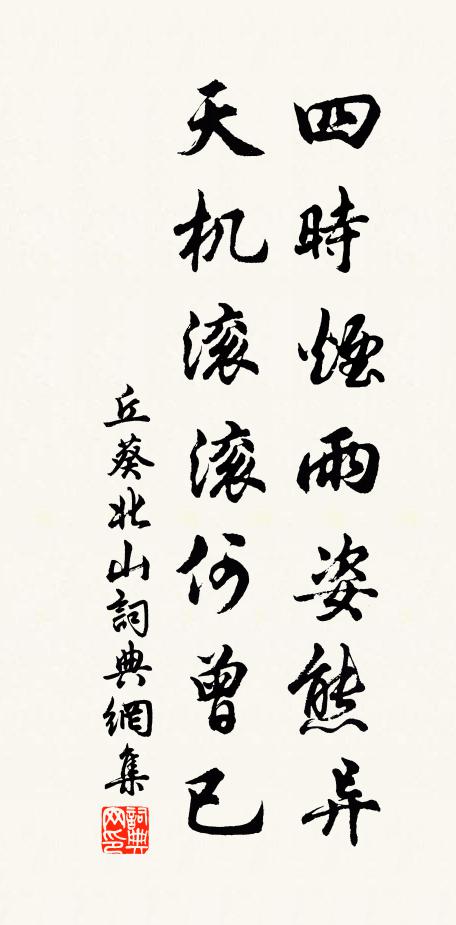 四時煙雨姿態异
天机滚滚何曾已
丘葵北山詞典網集
詞典网印